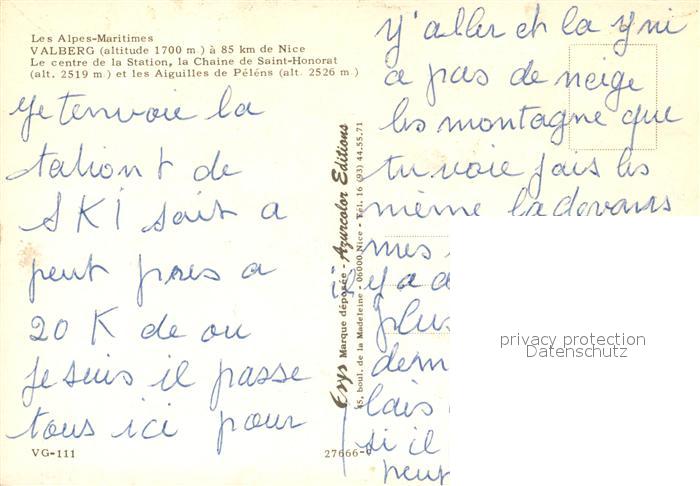 Les Alpes-Maritimes
VALBERG (altitude 1700 m) à 85 km de Nice
Le centre de la Station, la Chaine de Saint-Honorat
(alt. 2519 m) et les Aiguilles de Péléns (alt. 2526 m)
Je tenvoie la
stationt de
SKi sait a
peut pres a
20 K de ou
je suis il passe
tous ici pour
VG-111
27666-
Esys Marque déposée - Azurcolor Editions
45, boul. de la Madeleine - 06000 Nice - Tél. 16 (93) 44.55.71
y'aller et la
a pas de neige
les montagne que
tu voie jais les
même la devans
mes
il y a
plus
dern
lais
si il
peut
privacy protection
Datenschutz